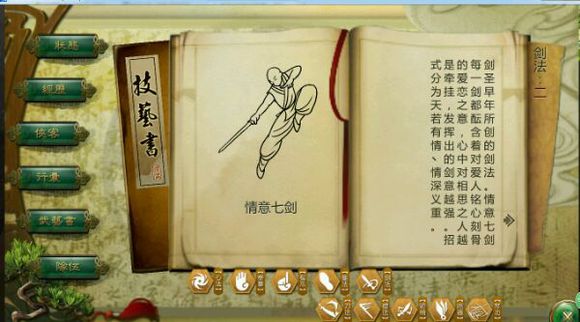 狀態
經歷
俠客
行囊
技藝書
情意七剑
剑法:二
剑圣早年所创的剑法。情意七剑
每一剑都酝含着对爱人铭心刻骨
的爱恋之意,心中对相思之人越
是牵挂,发挥出的剑意越强。招
式分为天若有情、情深义重。